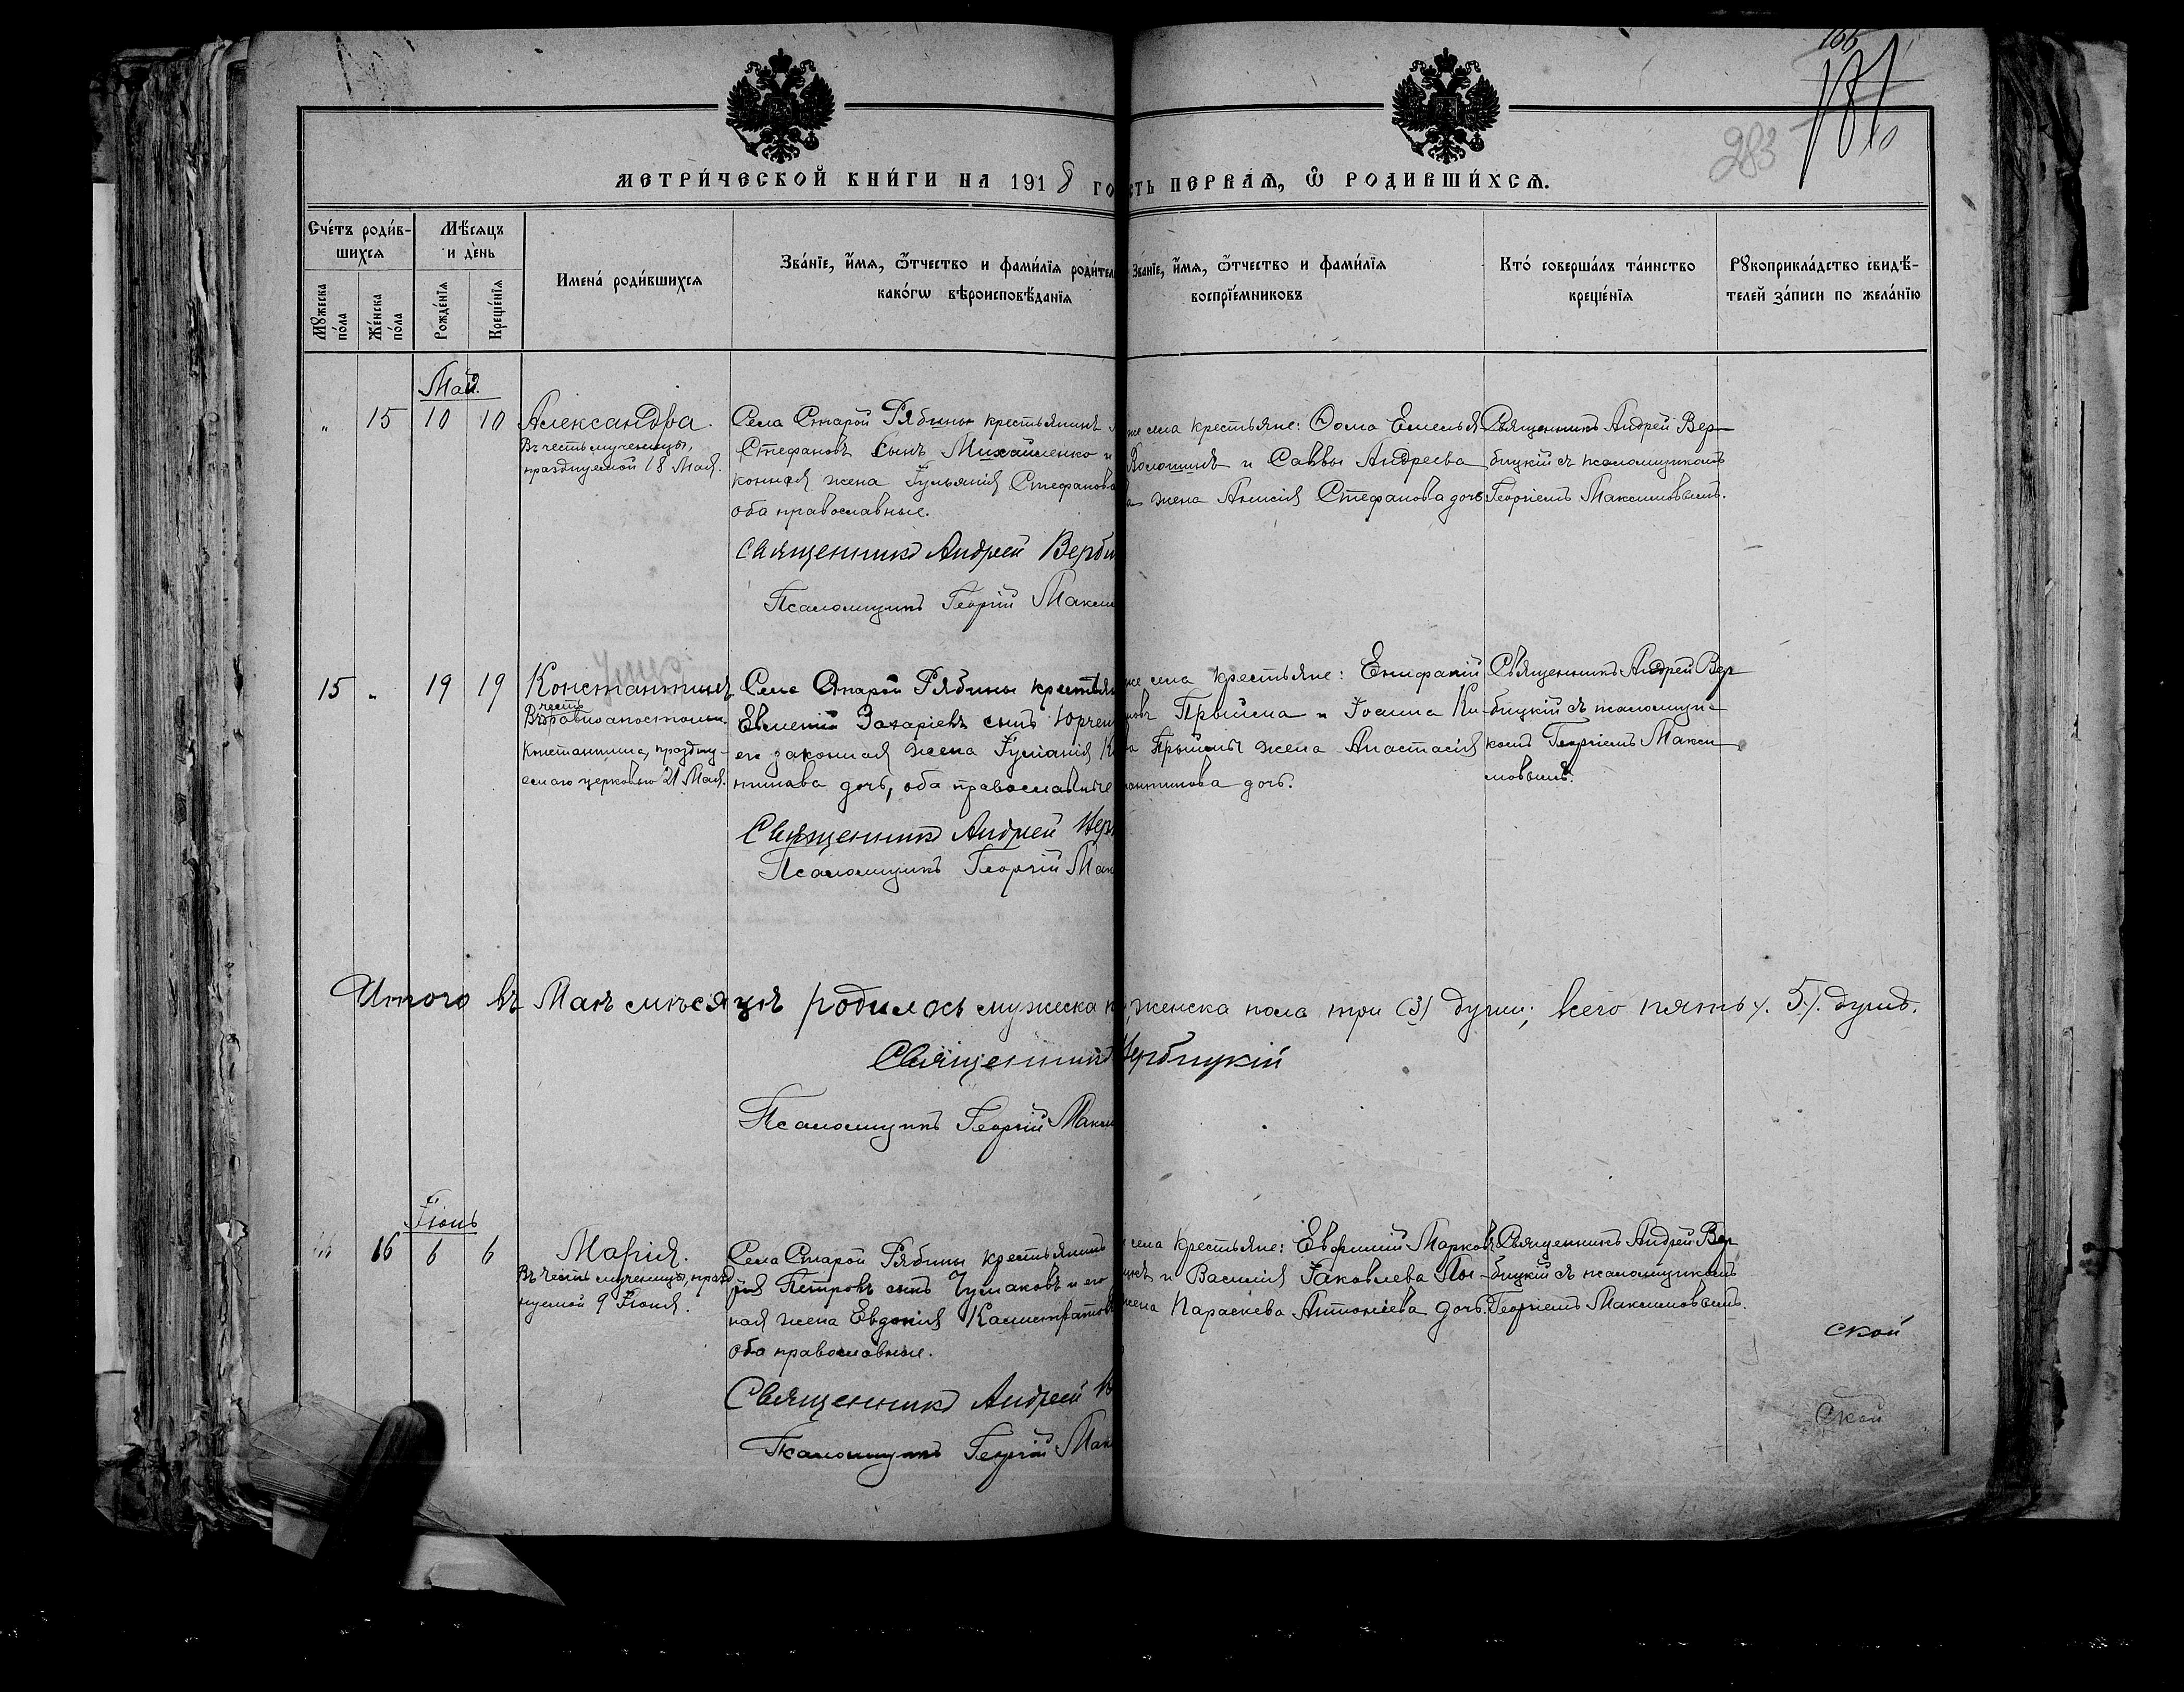 166
181
283
МЕТРИ́ЧЕСКОЙ КНИ́ГИ НА 1918 ГО
СТЬ ПЕРВАѦ, Ѽ РОДИВШИ́ХСѦ.
Сче́тъ роди́в-
шихсѧ
Мꙋжеска по́ла
Же́нска по́ла
Мѣ́сѧцъ
и де́нь
Рожде́нїѧ
Креще́нїѧ
Имена̀ роди́вшихсѧ
Зва́нїе, и҆́мѧ, ѻ҆́тчество и фами́лїѧ роди́тел
како́гѡ вѣроисповѣ́данїѧ
Зва́нїе, и҆́мѧ, ѻ҆́тчество и фами́лїѧ
воспрїе́мниковъ
Кто́ соверша́лъ та́инство
креще́нїѧ
Рꙋкоприкла́дство свидѣ́-
телей за́писи по жела́нїю
Май.
" 15 10 10
Александра.
Въ честь мученицы,
празднуемой 18 Мая.
Села Старой Рябины крестьянинъ
Стефановъ сынъ Михайленко и
конная жена Іульянія Стефанова
оба православные.
Священникъ Андрей Верби
Псаломщикъ Георгій Макси
же села крестьяне: Ѳома Емелья
и Саввы Андреева
жена Анисія Стефанова дочь
Священникъ Андрей Вер-
бицкій съ псаломщикомъ
Георгіемъ Максимовымъ.
15 " 19 19
Константинъ
Въ честь равноапостольн.
Константина, праздну-
емаго церковью 21 Мая.
Села Старой Рябины крестьян
Евмений Захаріевъ сынъ Юрчен
его законная жена Іуліанія К
нтинова дочь, оба православные
Священникъ Андрей Вер
Псаломщикъ Георгій Мак
же села крестьяне: Епифаній
новъ Прыйма и Іоанна Ки-
Прыймы жена Анастасія
антинова дочь.
Священникъ Андрей Вер
бицкій съ псаломщи-
комъ Георгіемъ Макси
мовымъ.
Итого въ Маѣ мѣсяцѣ родилось мужеска п
женска пола три (3) души; всего пять /. 5 /. душъ.
Священникъ
Вербицкій
Псаломщикъ Георгій Макси
Іюнь
" 16 6 6
Марія.
Въ честь мученицы, празд
нуемой 9 Іюня.
Села Старой Рябины крестьянинъ
Петровъ сынъ Чумаковъ и его
ная жена Евдокія Калистратов
оба православные.
Священникъ Андрей В
Псаломщикъ Георгій Мак
села крестьяне: Евфимій Марковъ
и Василія Іаковлева
жена Параскева Антоніева дочь.
Священникъ Андрей Вер
бицкій съ псаломщикомъ
Георгіемъ Максимовымъ.
ской
Ской